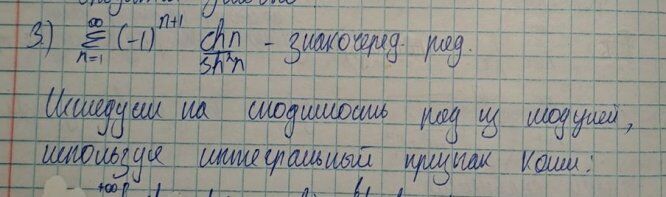 3.) ∞ Σ n=1 (-1)^n+1 chn/sh²n - знакочеред. ряд.
Исследуем на сходимость ряд из модулей,
используя интегральный признак Коши:
+∞